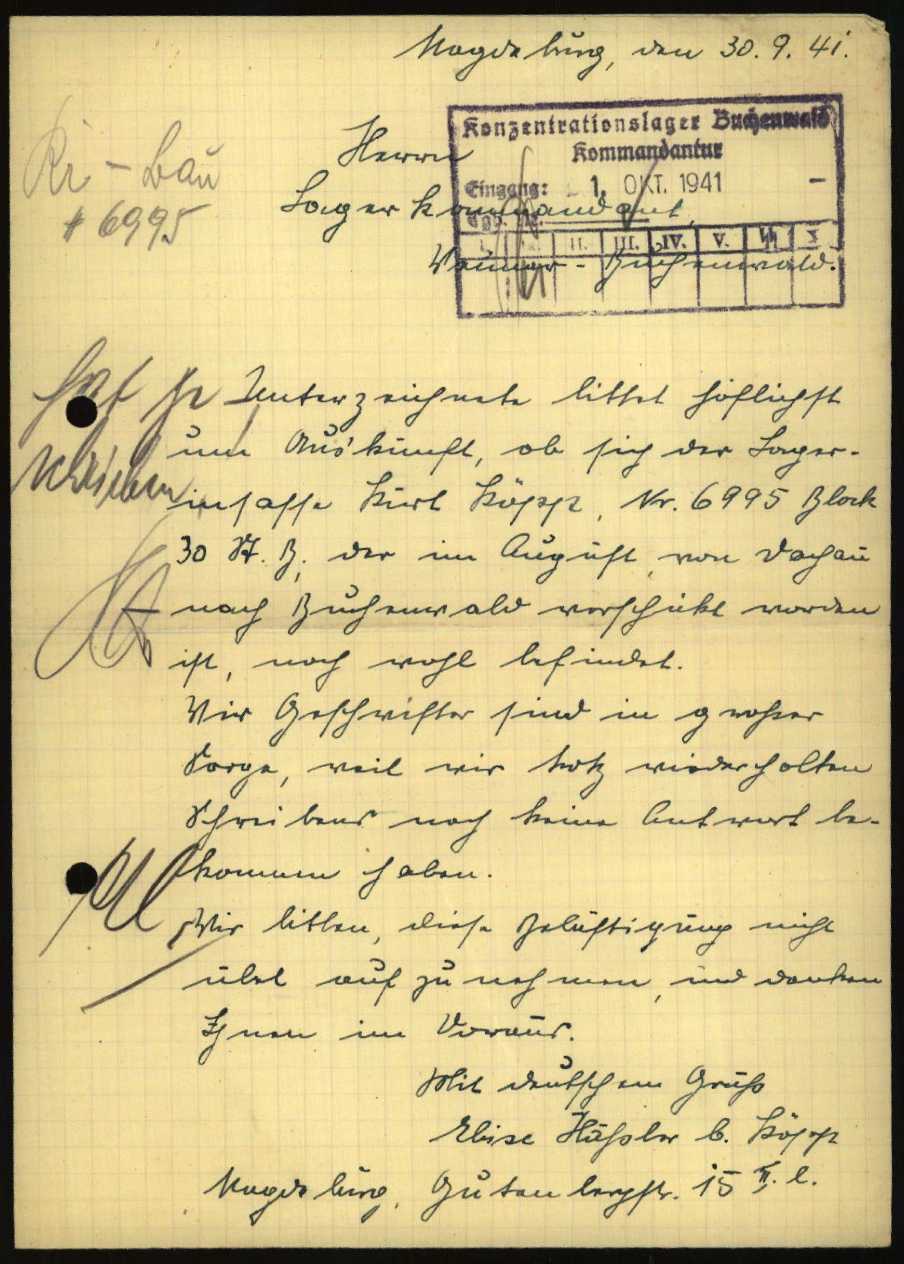 Magdeburg, den 30. 9. 41.
Konzentrationslager Buchenwald
Kommandantur
Eingang: 1. OKT. 1941
I. II. III. IV. V.
Ri - Bau
# 6995
Herrn
Lagerkommandant,
Weimar - Buchenwald.
hat
Unterzeichnete bittet höflichst
um Auskunft, ob sich der Lager-
insasse Kurt Köppp, Nr. 6995 Block
30 St. B., der im August, von Dachau
nach Buchenwald verschickt worden
ist, noch wohl befindet.
Wir Geschwister sind in grosser
Sorge, weil wir trotz wiederholten
Schreibens noch keine Antwort be-
kommen haben.
Wir bitten, diese Belästigung nicht
übel aufzunehmen, und danken
Ihnen im Voraus.
Mit deutschem Gruß
Elise Häßler b. Köpp
Magdeburg, Gutenbergstr. 15 II. l.